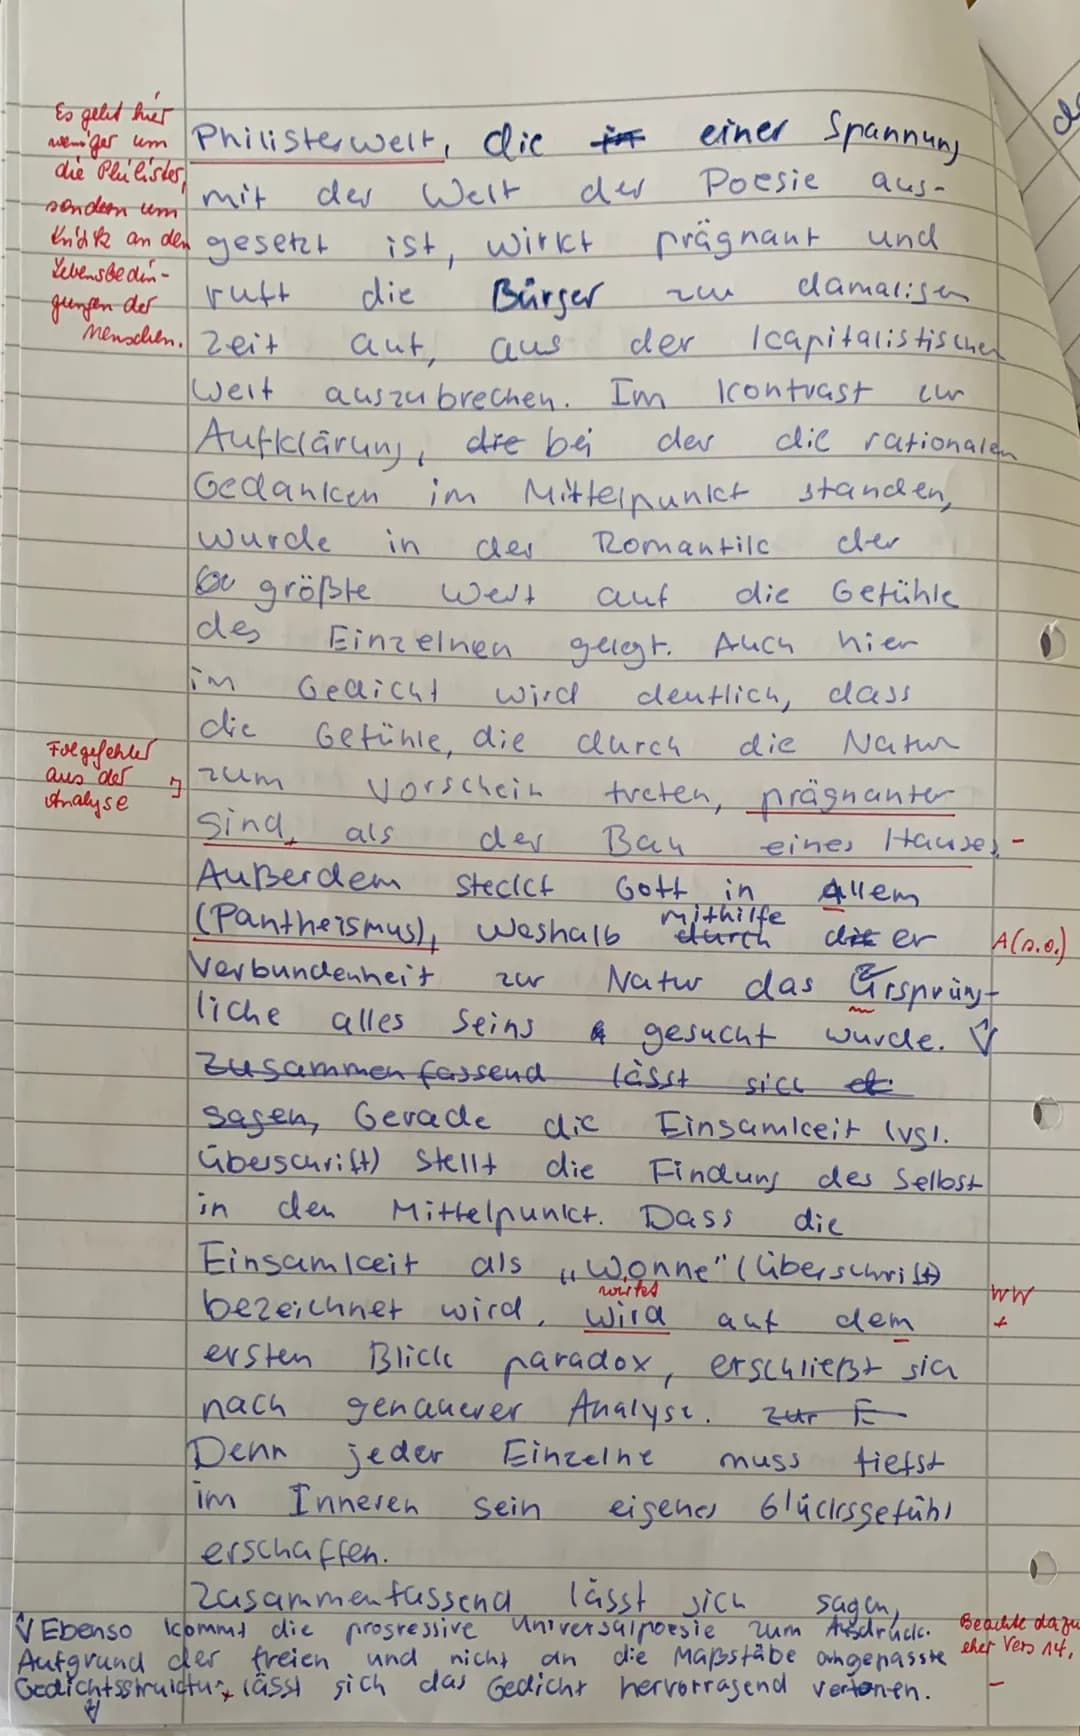 Es geht hier
weniger um
die Philister,
sondern um
Kritik an den
Lebensbedin-
gungen der
Menschen.
Philisterwelt, die in einer Spannung
mit der Welt der Poesie aus-
gesetzt ist, wirkt prägnant und
ruft die Bürger zur damaligen
Zeit auf, aus der kapitalistischen
Welt auszubrechen. Im Kontrast zur
Aufklärung, die bei der die rationalen
Gedanken im Mittelpunkt standen,
wurde in der Romantik der
größte Wert auf die Gefühle
des Einzelnen gelegt. Auch hier
im Gedicht wird deutlich, dass
die Gefühle, die durch die Natur
Folgefehler
aus der
Analyse
zum Vorschein treten, prägnanter
sind, als der Bau eines Hauses. -
Außerdem steckt Gott in Allem
(Pantheismus), weshalb durch mithilfe die er A (s.o.)
Verbundenheit zur Natur das Ursprüng-
liche alles Seins gesucht wurde.
Zusammenfassend lässt sich
sagen, Gerade die Einsamkeit (vgl.
Überschrift) stellt die Findung des Selbst
in den Mittelpunkt. Dass die
Einsamkeit als „Wonne" (Überschrift)
bezeichnet wird, wird wirkt auf dem WW
ersten Blick paradox, erschließt sich
nach genauerer Analyse. Zur E
Denn jeder Einzelne muss tiefst
im Inneren sein eigenes Glücksgefühl
erschaffen.
Zusammenfassend lässt sich sagen,
Ebenso kommt die progressive Universalpoesie zum Ausdruck.
Aufgrund der freien und nicht an die Maßstäbe angepasste
Gedichtsstruktur, lässt sich das Gedicht hervorragend vertonen.
Beachte dazu
eher Vers 14,
-